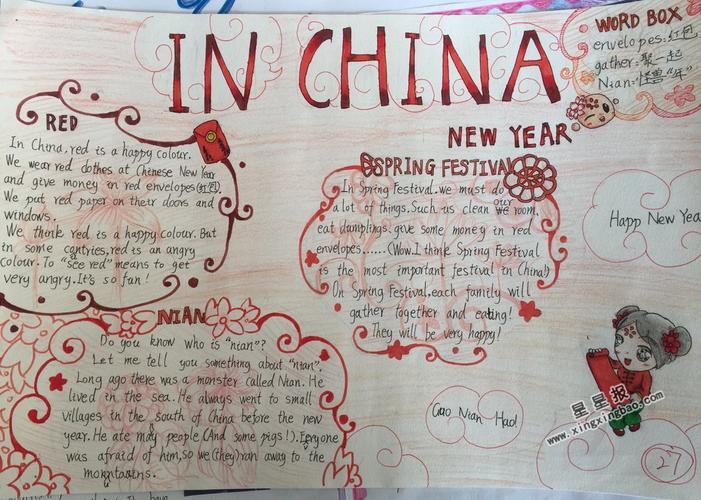 IN CHINA
WORD BOX
envelopes:红包
gather:聚一起
Nian:怪兽“年”
NEW YEAR
RED
In China, red is a happy colour.
We wear red clothes at Chinese New Year
and give money in red envelopes(红包)
We put red paper on their doors and
windows.
We think red is a happy colour. But
in some contries, red is an angry
colour. To "see red" means to get
very angry. It's so fun!
SPRING FESTIVAL
In Spring Festival. we must do
a lot of things. Such us clean our room.
eat dumplings. give some money in red
envelopes......(Wow. I think Spring Festival
is the most important festival in China!)
On Spring Festival, each family will
gather together and eating!
They will be very happy!
Happy New Yea
NIAN
Do you know who is "nian"?
Let me tell you something about "nian".
Long ago there was a monster called Nian. He
lived in the sea. He always went to small
villages in the south of China before the new
year. He ate many people (And some pigs!). Everyone
was afraid of him, so we (they) ran away to the
mountains.
Gao Nian Hao!
星星报
www.xingxingbao.com
27